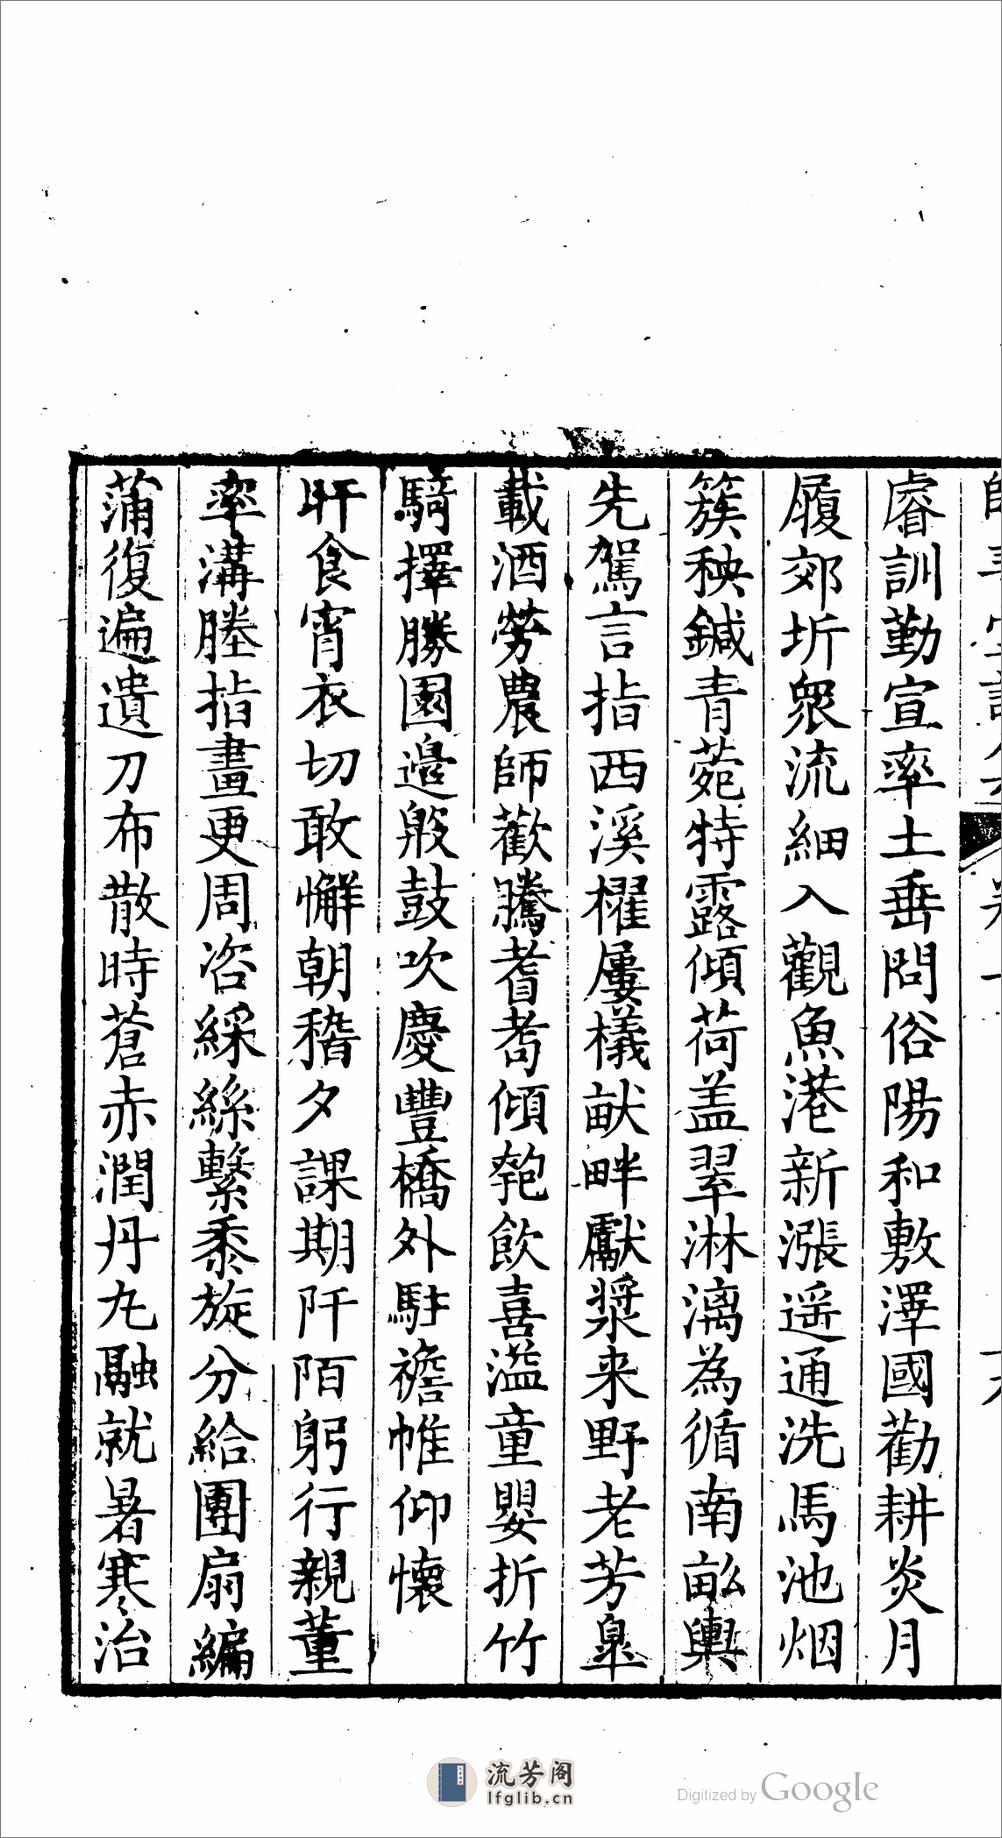 睿訓勤宣率土垂問俗陽和敷澤國勸耕炎月
履郊圻衆流細入觀魚港新漲遥通洗馬池烟
簇秧鍼青菀特露傾荷盖翠淋漓為循南畝輿
先駕言指西溪櫂屢檥畎畔獻漿来野老芳皐
載酒勞農師歡騰耆耇傾匏飲喜溢童嬰折竹
騎擇勝園邉殷鼓吹慶豐橋外駐襜帷仰懐
旰食宵衣切敢懈朝稽夕課期阡陌躬行親董
率溝塍指畫更周咨綵絲繫黍旋分給團扇編
蒲復遍遺刀布散時蒼赤潤丹丸融就暑寒治
流芳阁
lfglib.cn
Digitized by Google